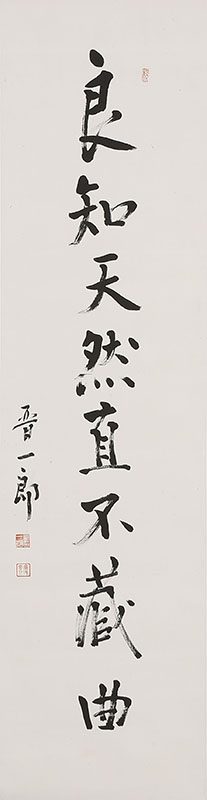 良知天然直不蔵曲
晋一郎